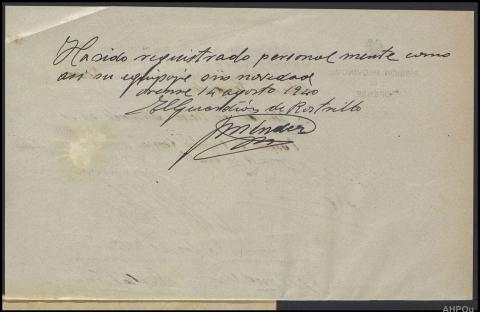 Ha sido registrado personal mente como
asi su equipaje sin novedad
orense 14 agosto 1940
El Guardián de Rastrillo
Mendez
PRISIÓN PROVINCIAL
ORENSE
AHPOu